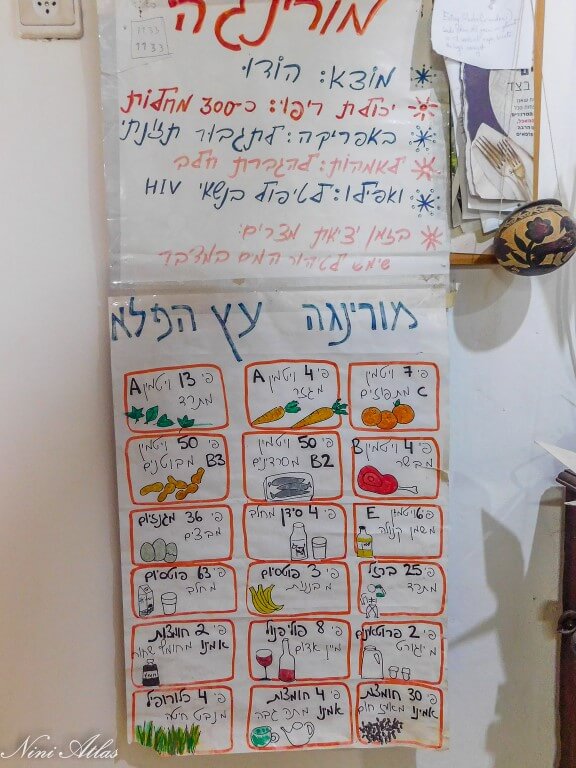 מורינגה
מוצא: הודו
יכולת ריפוי: כ-300 מחלות
באפריקה: לתגבור תזונתי
לאמהות: להגברת חלב
ואפילו: לטיפול בנשאי HIV
בזמן יציאת מצרים:
שימש לטהור המים במדבר
מורינגה עץ הפלא
פי 7 ויטמין
C מתפוזים
פי 4 ויטמין A
מגזר
פי 13 ויטמין A
מתרד
פי 4 ויטמין B
מבשר
פי 50 ויטמין
B2 מסרדינים
פי 50 ויטמין
B3 מבוטנים
פי 6 ויטמין E
משמן קנולה
פי 4 סידן מחלב
פי 36 מגנזיום
מביצים
פי 25 ברזל
מתרד
פי 3 פוטסיום
מבננות
פי 63 פוטסיום
מחלב
פי 2 פרוטאינים
מיוגורט
פי 8 פוליפנול
מיין אדום
פי 2 חומצות
אמינו מחומץ שחור
פי 30 חומצות
אמינו מאורז חום
פי 4 חומצות
אמינו מתה גבה
פי 4 כלורופיל
מנבט חיטה
Nini Atlas